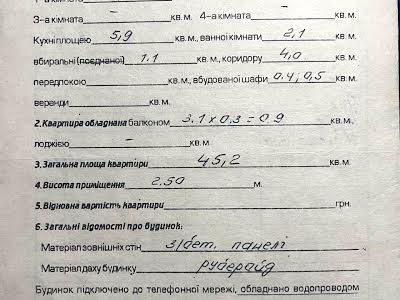 1-а кімната кв. м.
3-а кімната – кв. м. 4-а кімната – кв. м.
Кухні площею 5,9 кв. м., ванної кімнати 2,1 кв. м.
вбиральні (поєднаної) 1.1 кв. м., коридору 4,0 кв. м.
передпокою кв. м., вбудованої шафи 0.4; 0,5 кв. м.
веранди кв. м.
2. Квартира обладнана балконом 3.1 х 0.3 = 0.9 кв. м.,
лоджією – кв. м.
3. Загальна площа квартири 45,2 кв. м.
4. Висота приміщення 2.50 м.
5. Відновна вартість квартири грн.
6. Загальні відомості про будинок:
Матеріал зовнішніх стін з/бет. панелі
Матеріал даху будинку руберайд
Будинок підключено до телефонної мережі, обладнано водопроводом